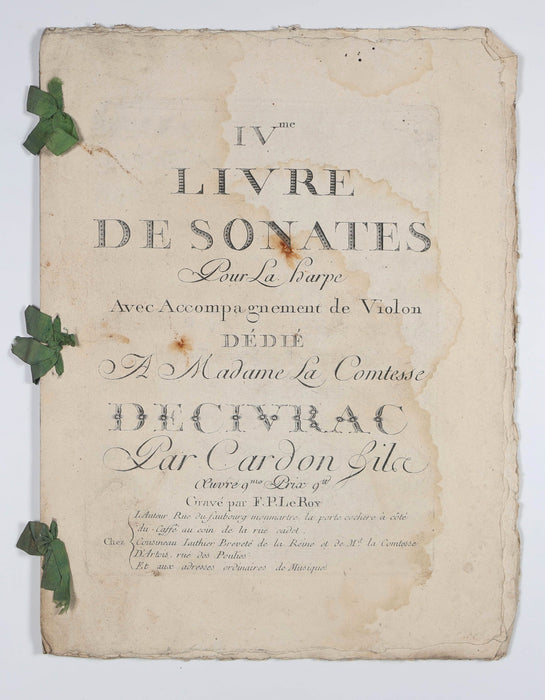 IVme
LIVRE
DE SONATES
Pour La harpe
Avec Accompagnement de Violon
DÉDIÉ
A Madame La Comtesse
DECIVRAC
Par Cardon fils
Œuvre 9me Prix 9tt
Gravé par F.P.LeRoy
L'Auteur Rue du faubourg monmartre la porte cochere à côté
du Caffé au coin de la rue cadet.
Chez Cousineau Luthier Breveté de la Reine et de Md. la Comtesse
D'Artois, rue des Poulies
Et aux adresses ordinaires de Musique